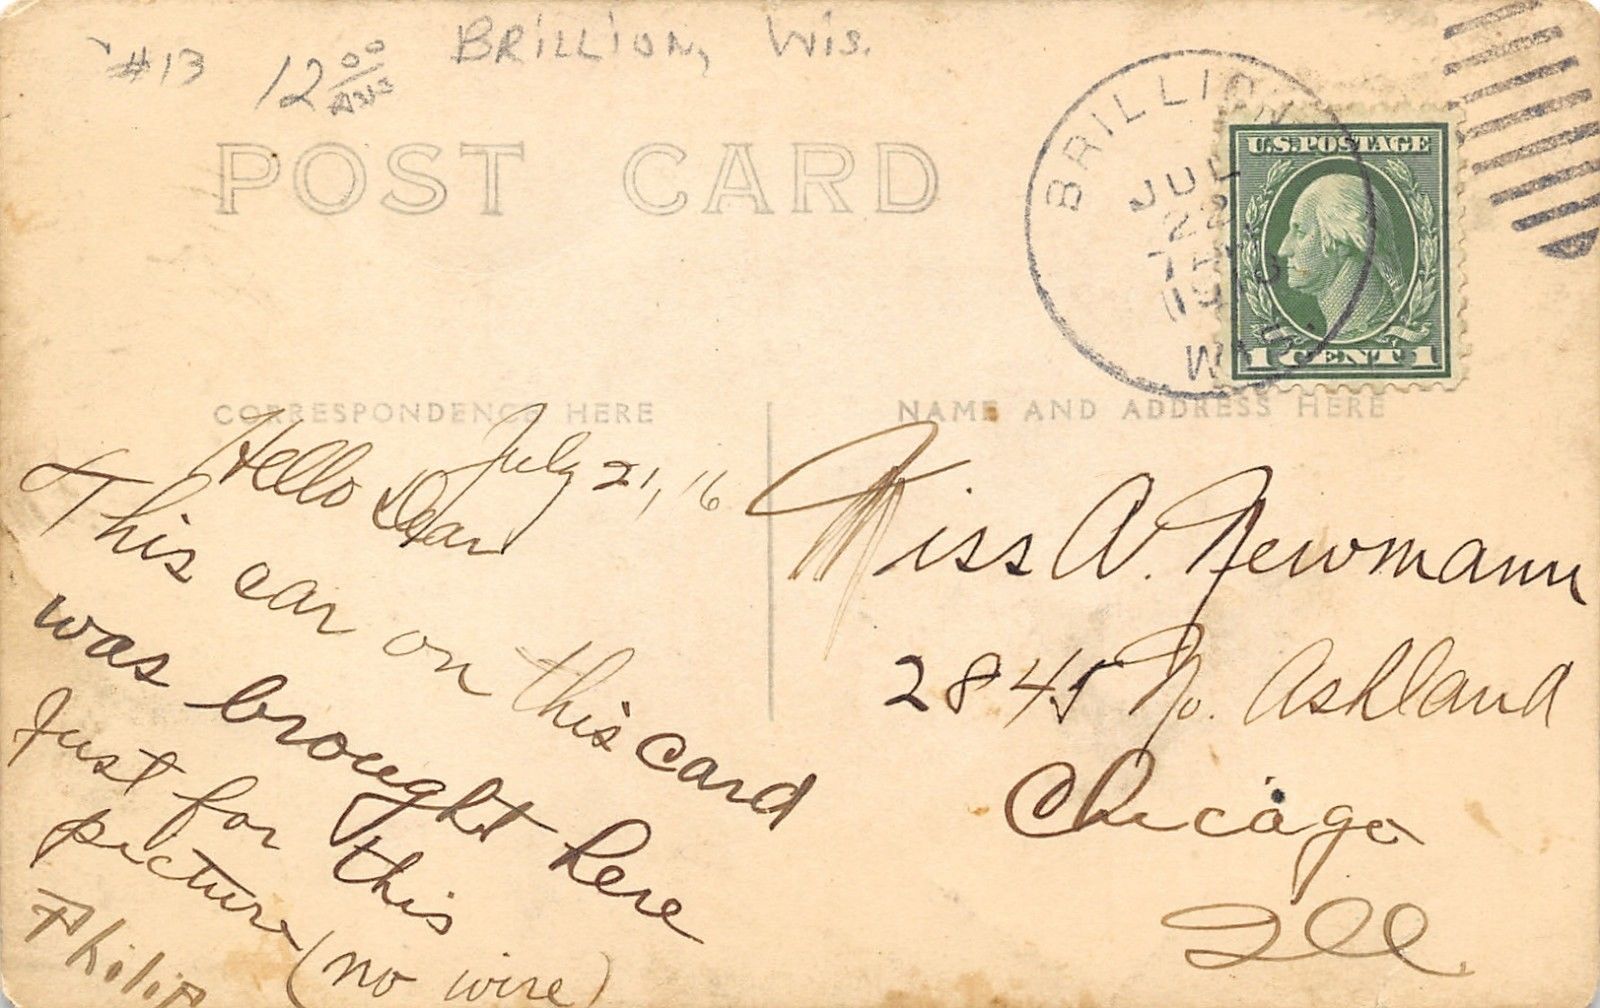 #13 12 00 BRILLION, WIS.
POST CARD
BRILLION
JUL
22
7
WIS.
U.S. POSTAGE
1 CENT 1
CORRESPONDENCE HERE
NAME AND ADDRESS HERE
July 21, 16
Hello Dear
This car on this card
was brought here
Just for this
picture (no wire)
Philip
Miss A. Newmann
2845 No. Ashland
Chicago
Ill.